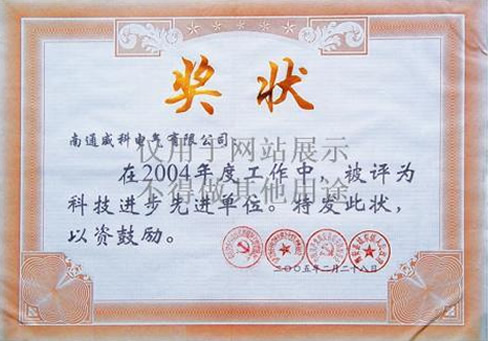 奖状
南通威科电气有限公司:
仅用于网站展示
在2004年度工作中，被评为
不得做其他用途
科技进步先进单位。特发此状，
以资鼓励。
二〇〇五年二月二十八日